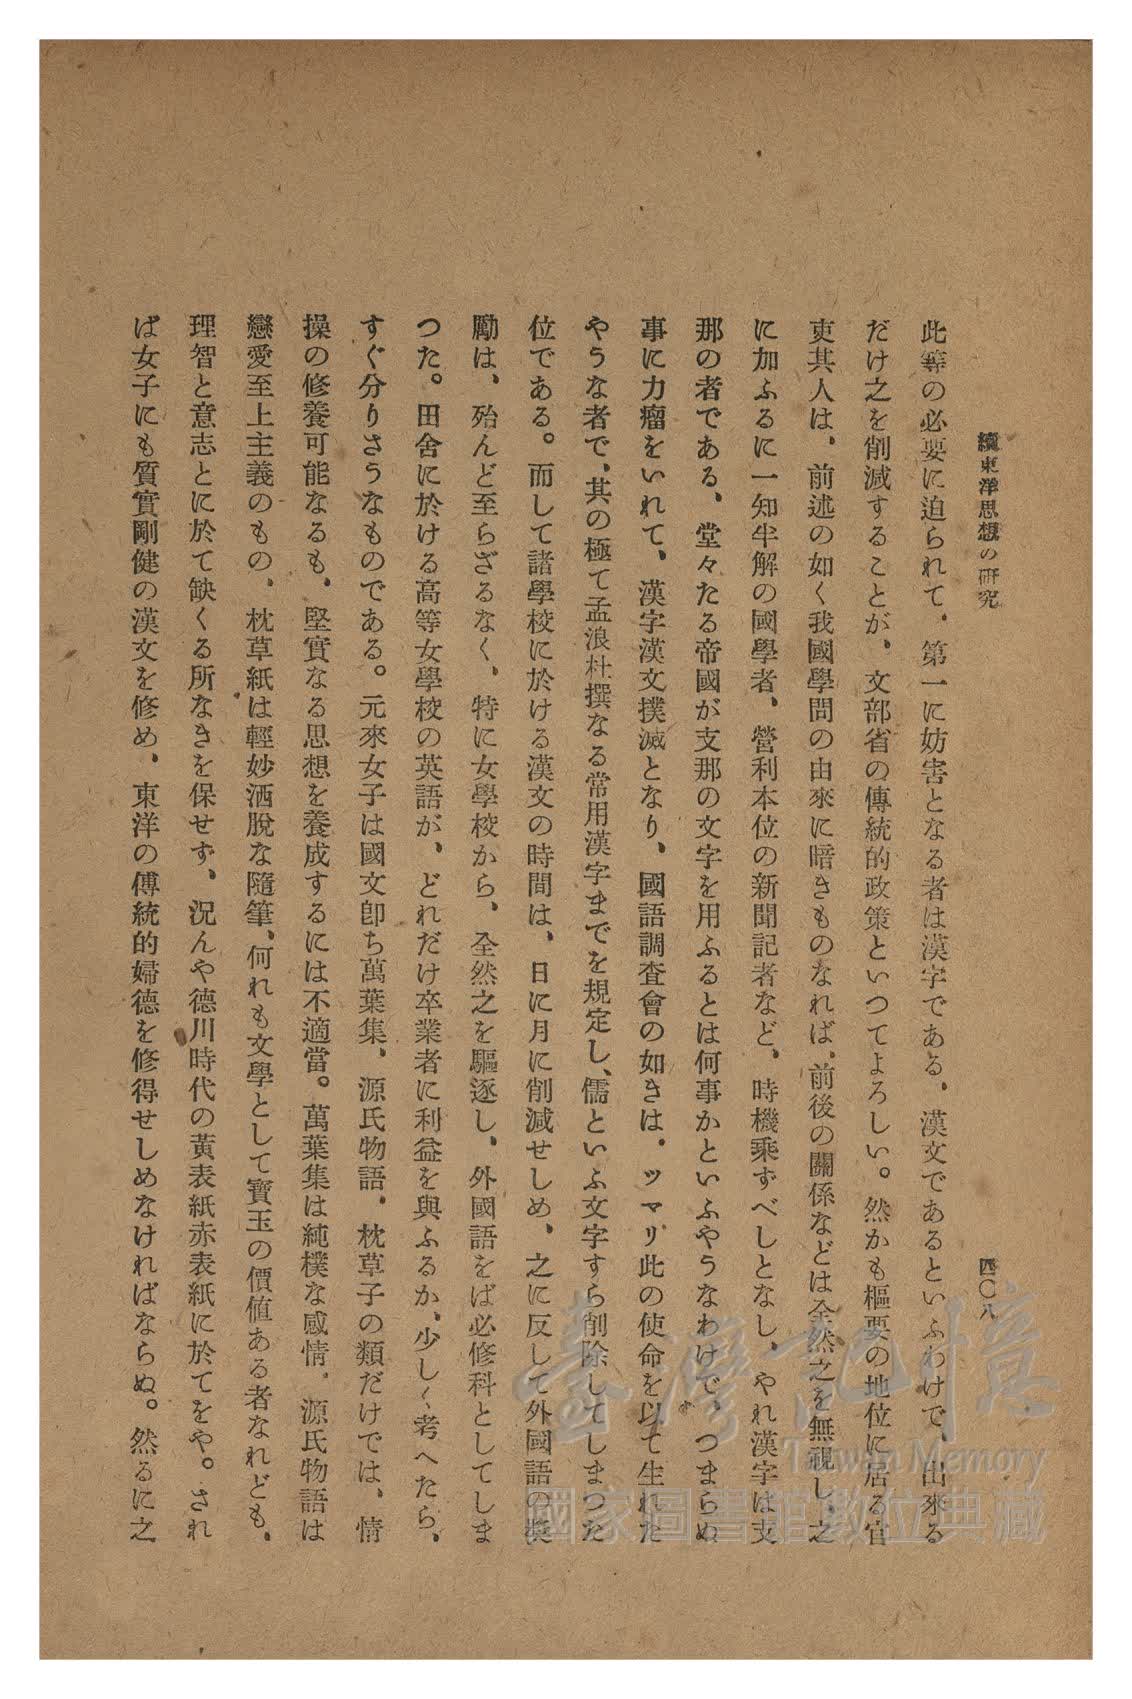 續東洋思想の研究
四〇八
此等の必要に迫られて、第一に妨害となる者は漢字である、漢文であるといふわけで、出來る
だけ之を削減することが、文部省の傳統的政策といつてよろしい。然かも樞要の地位に居る官
吏其人は、前述の如く我國學問の由來に暗きものなれば、前後の關係などは全然之を無視し、之
に加ふるに一知半解の國學者、營利本位の新聞記者など、時機乘ずべしとなし、やれ漢字は支
那の者である、堂々たる帝國が支那の文字を用ふるとは何事かといふやうなわけで、つまらぬ
事に力瘤をいれて、漢字漢文撲滅となり、國語調査會の如きは、ツマリ此の使命を以て生れた
やうな者で、其の極て孟浪杜撰なる常用漢字までを規定し、儒といふ文字すら削除してしまつた
位である。而して諸學校に於ける漢文の時間は、日に月に削減せしめ、之に反して外國語の奬
勵は、殆んど至らざるなく、特に女學校から、全然之を驅逐し、外國語をば必修科としてしま
つた。田舍に於ける高等女學校の英語が、どれだけ卒業者に利益を與ふるか、少しく考へたら、
すぐ分りさうなものである。元來女子は國文卽ち萬葉集、源氏物語、枕草子の類だけでは、情
操の修養可能なるも、堅實なる思想を養成するには不適當。萬葉集は純樸な感情、源氏物語は
戀愛至上主義のもの、枕草紙は輕妙洒脫な隨筆、何れも文學として寶玉の價値ある者なれども、
理智と意志とに於て缺くる所なきを保せず、況んや德川時代の黃表紙赤表紙に於てをや。され
ば女子にも質實剛健の漢文を修め、東洋の傳統的婦德を修得せしめなければならぬ。然るに之
臺灣記憶
Taiwan Memory
國家圖書館數位典藏